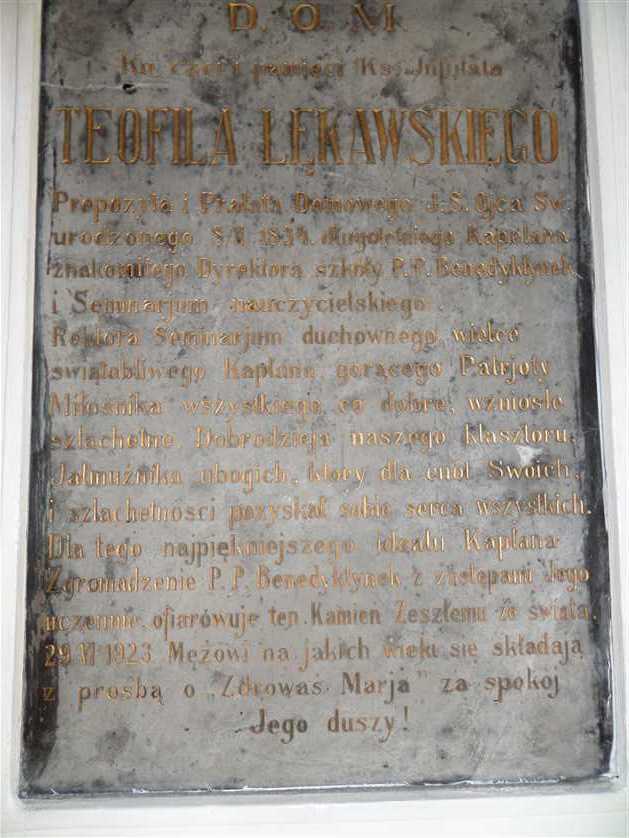 D. O. M.
Ku czci i pamięci Ks. Jubilata
TEOFILA ŁĘKAWSKIEGO
Prepozyta i Prałata Domowego J. S. Ojca Św.
urodzonego 8/V 1834. długoletniego Kapelana
znakomitego Dyrektora szkoły P. P. Benedyktynek
i Seminarjum nauczycielskiego.
Rektora Seminarjum duchownego, wielce
świątobliwego Kapłana, gorącego Patrjoty
Miłośnika wszystkiego co dobre, wzniosłe
szlachetne, Dobrodzieja naszego klasztoru,
Jałmużnika ubogich, który dla cnót Swoich,
i szlachetności pozyskał sobie serca wszystkich.
Dla tego najpiękniejszego ideału Kapłana
Zgromadzenie P. P. Benedyktynek z zastępami Jego
uczennic, ofiarowuje ten Kamien Zeszłemu ze świata,
29 VI 1923 Mężowi na jakich wieki się składają
z prośbą o „Zdrowaś Marja" za spokój
Jego duszy!